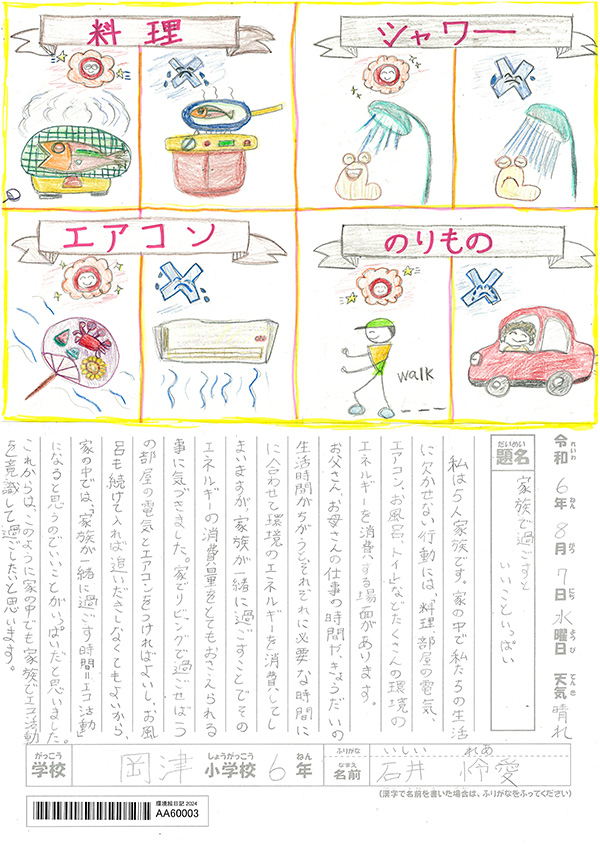 料理
シャワー
エアコン
のりもの
walk
令和6年8月7日水曜日 天気 晴れ
れいわ ねん がつ にち すい ようび てんき は
だいめい
題名
家族で過ごすと
いいこといっぱい
私は5人家族です。家の中で私たちの生活
に欠かせない行動には、料理、部屋の電気、
エアコン、お風呂、トイレなどたくさんの環境の
エネルギーを消費する場面があります。
お父さん、お母さんの仕事の時間や、きょうだいの
生活時間がちがうとそれぞれに必要な時間に
に合わせて環境のエネルギーを消費してし
まいますが、家族が一緒に過ごすことでその
エネルギーの消費量をとてもおさえられる
事に気づきました。家でリビングで過ごせば1つ
の部屋の電気とエアコンをつければよいし、お風
呂も続けて入れば追いださしなくてもよいから、
家の中では、「家族が一緒に過ごす時間=エコ活動」
になると思うのでいいことがいっぱいだと思いました。
これからは、このように家の中でも家族でエコ活動
を意識して過ごしたいと思います。
がっこう
学校
岡津
しょうがっこう
小学校
6
ねん
年
ふりがな
いしい れあ
なまえ
名前
石井 怜愛
(漢字で名前を書いた場合は、ふりがなをふってください)
環境絵日記 2024
AA60003